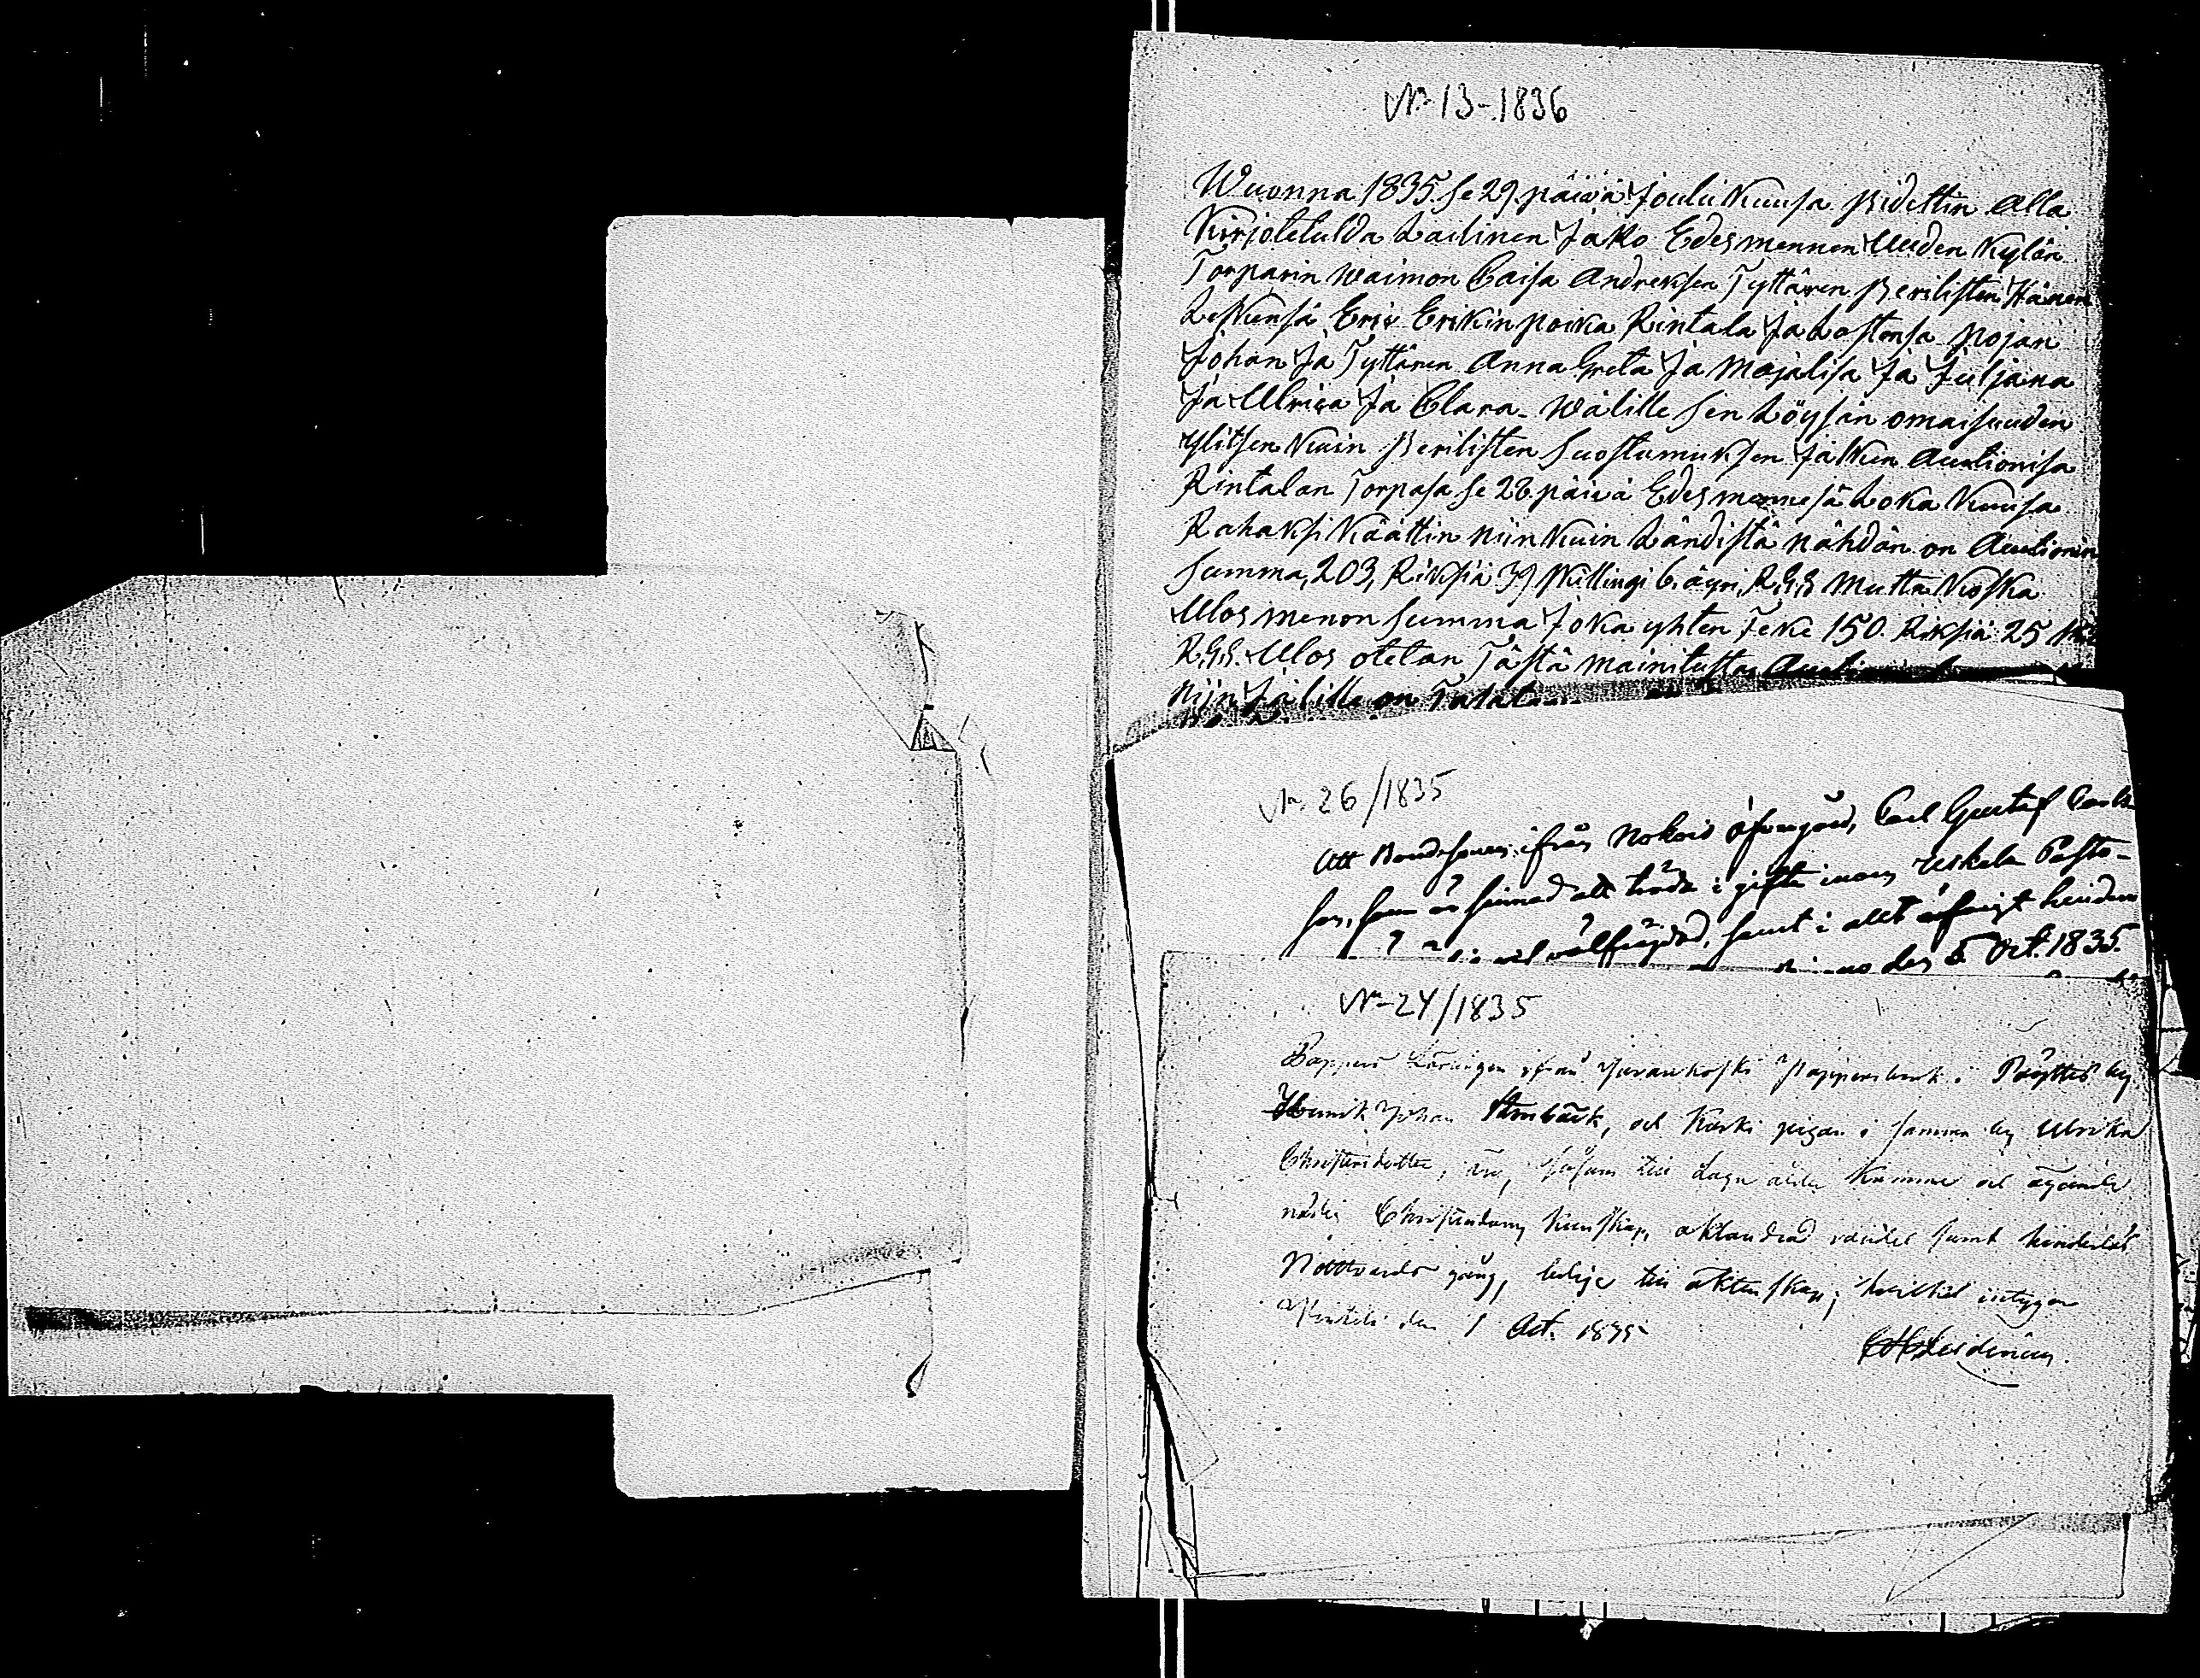 No 13-1836
Wuonna 1835 se 29 päivä Joulu Kuusa Pidettin Alla
Kirjoteteulda Lailinen Jako Edesmennen Uuden Kylän
Torparin waimon Caisa Andreksen Tyttären Perilisten Hänen
Leskensä Eric Erikinpoika Rintala Ja Lastensa Pojan
Johan Ja Tyttären Anna Greta Ja Majalisa Ja Juljana
Ja Ulrica Ja Clara - Wälille sen Löysän omaisuuden
ylitsen Kuin Perilisten Suostumuksen Jälken Auctionisa
Rintalan Torpasa se 28 päivä Edesmennesä Loka Kuusa
Rahaksi Käättin niin Kuin Ländistä nähdän on Auctionin
Summa, 203, Riksiä 39 Killingi 6. äyri, R.G.S mutta Koska
Ulos menon Summa Joka yhten Teke 150. Riksiä 25
R.G.S. Ulos otetan Tästä mainitusta
Niin Jä lille on
No 26/1835
Att Bondesonen ifrån Nokois Öfvergård, Carl Gustaf
som är sinnad att träda i gifte inom Uskela Pasto-
väl välfrägdad, samt i allt öfrigt hinder
den 5 Oct. 1835.
No 24/1835
Pappers Lärlingen ifrån Juvankoski Pappersbruk i Pöyttis by
Henrik Johan Stenbäck, och Karki pigan i samma by Ulrika
Christersdotter, äro, såsom till Laga ålder komne och ägande
nödig Christendoms kunskap, oklandrad vandel samt hinderlös
Nattvards gång, ledige till äktenskap; hvilket intygar
den 1 Oct. 1835